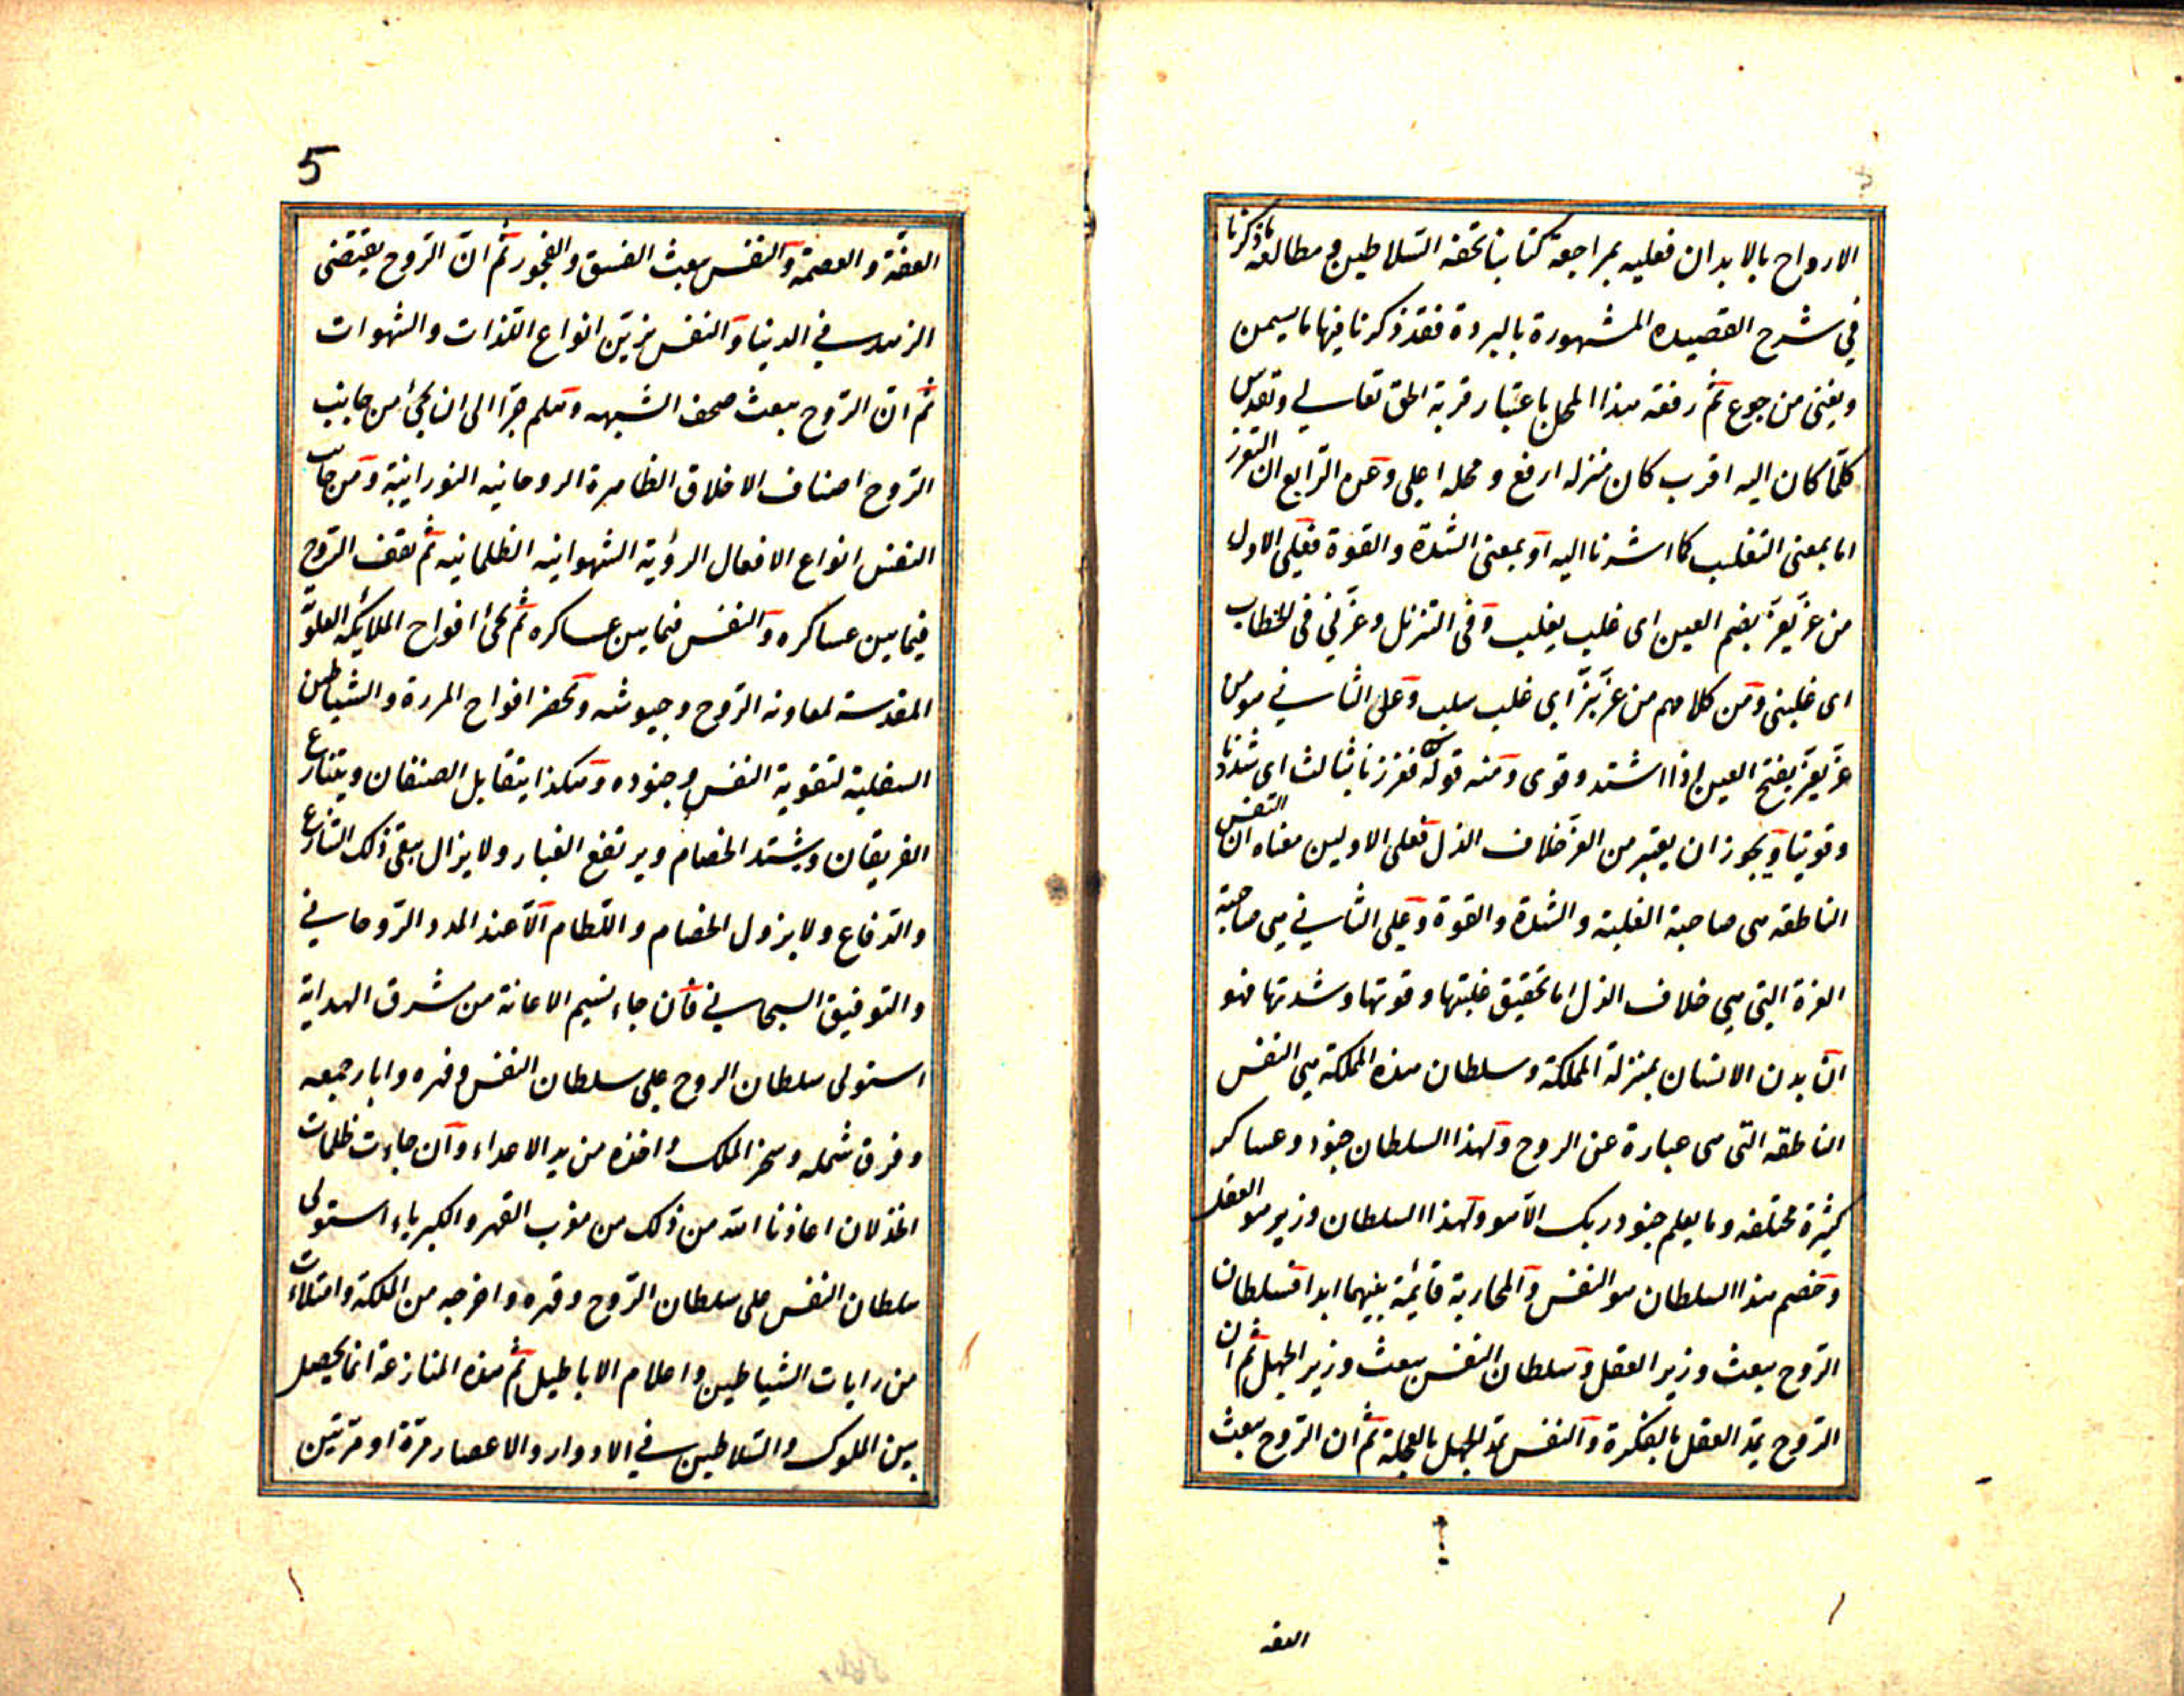 الارواح بالابدان فعليه بمراجعة كتابنا تحفه السّلاطين و مطالعه ما ذكرنا
في شرح القصيده المشهورة بالبردة فقد ذكرنا فيها ما يسمن
ويغنى من جوع ثمّ رفعة هذا المحل باعتبار قربة الحق تعالى وتقدس
كلّما كان اليه اقرب كان منزله ارفع و محله اعلى وعن الرّابع ان التعزز
اما بمعنى التغلب كما اشرنا اليه او بمعنى الشدة والقوة فعلى الاول
من عزّ يعزّ بضم العين اى غلب يغلب وفى التنزيل وعزّني فى الخطاب
اى غلبنى ومن كلامهم من عزّ بزّ اى غلب سلب وعلى الثاني هو من
عزّ يعزّ بفتح العين اذا اشتد وقوى ومنه قوله فعززنا بثالث اى شدّدنا
وقوينا ويجوز ان يعتبر من العزّ خلاف الذل فعلى الاولين معناه ان النفس
الناطقه هى صاحبة الغلبة والشدة والقوة وعلى الثاني هى صاحبة
العزة التي هي خلاف الذل اما تحقيق غلبتها وقوتها وشدتها فهو
انّ بدن الانسان بمنزلة المملكة وسلطان هذه المملكة هي النفس
الناطقه التى هى عبارة عن الروح ولهذا السلطان جنود وعساكر
كثيرة مختلفه وما يعلم جنود ربك الّا هو ولهذا السلطان وزير هو العقل
وخصم هذا السلطان هو النفس والمحاربة قائمة بينهما ابدا فسلطان
الرّوح يبعث وزير العقل وسلطان النفس يبعث وزير الجهل ثمّ ان
الرّوح يمدّ العقل بالفكرة والنفس يمدّ الجهل بالعجلة ثمّ ان الرّوح يبعث
العفه
5
العفّة والعصمة والنفس يبعث الفسق والفجور ثمّ انّ الرّوح يقتضى
الزهد في الدنيا والنفس يزيّن انواع اللّذات والشهوات
ثمّ انّ الرّوح يبعث صحف الشبهه وهلم جرّا الى ان يجئ من جانب
الرّوح اصناف الاخلاق الطاهرة الروحانيه النورانية ومن جانب
النفس انواع الافعال الرديّة الشهوانيه الظلمانيه ثم يقف الرّوح
فيما بين عساكره والنفس فيما بين عساكره ثم يجئ افواج الملائكه العلويّه
المقدسة لمعاونه الرّوح وجيوشه وتحضر افواج المردة والشياطين
السفلية لتقوية النفس وجنوده وهكذا يتقابل الصنفان ويتنازع
الفريقان ويشتد الخصام ويرتفع الغبار ولا يزال يبقى ذلك التنازع
والدّفاع ولا يزول الخصام واللّطام الّا عند المدد الرّوحاني
والتوفيق السبحاني فان جاء نسيم الاعانة من شرق الهداية
استولى سلطان الروح على سلطان النفس وقهره واباد جمعه
وفرق شمله وسخّر الملك واخذه من يد الاعداء وان جاءت ظلمات
الخذلان اعاذنا الله من ذلك من مغرب القهر والكبرياء استولى
سلطان النفس على سلطان الرّوح وقهره واخرجه من المملكة وامتلاءت
من رايات الشياطين واعلام الاباطيل ثمّ هذه المنازعة انما يحصل
بين الملوك والسّلاطين في الادوار والاعصار مرّة او مرّتين